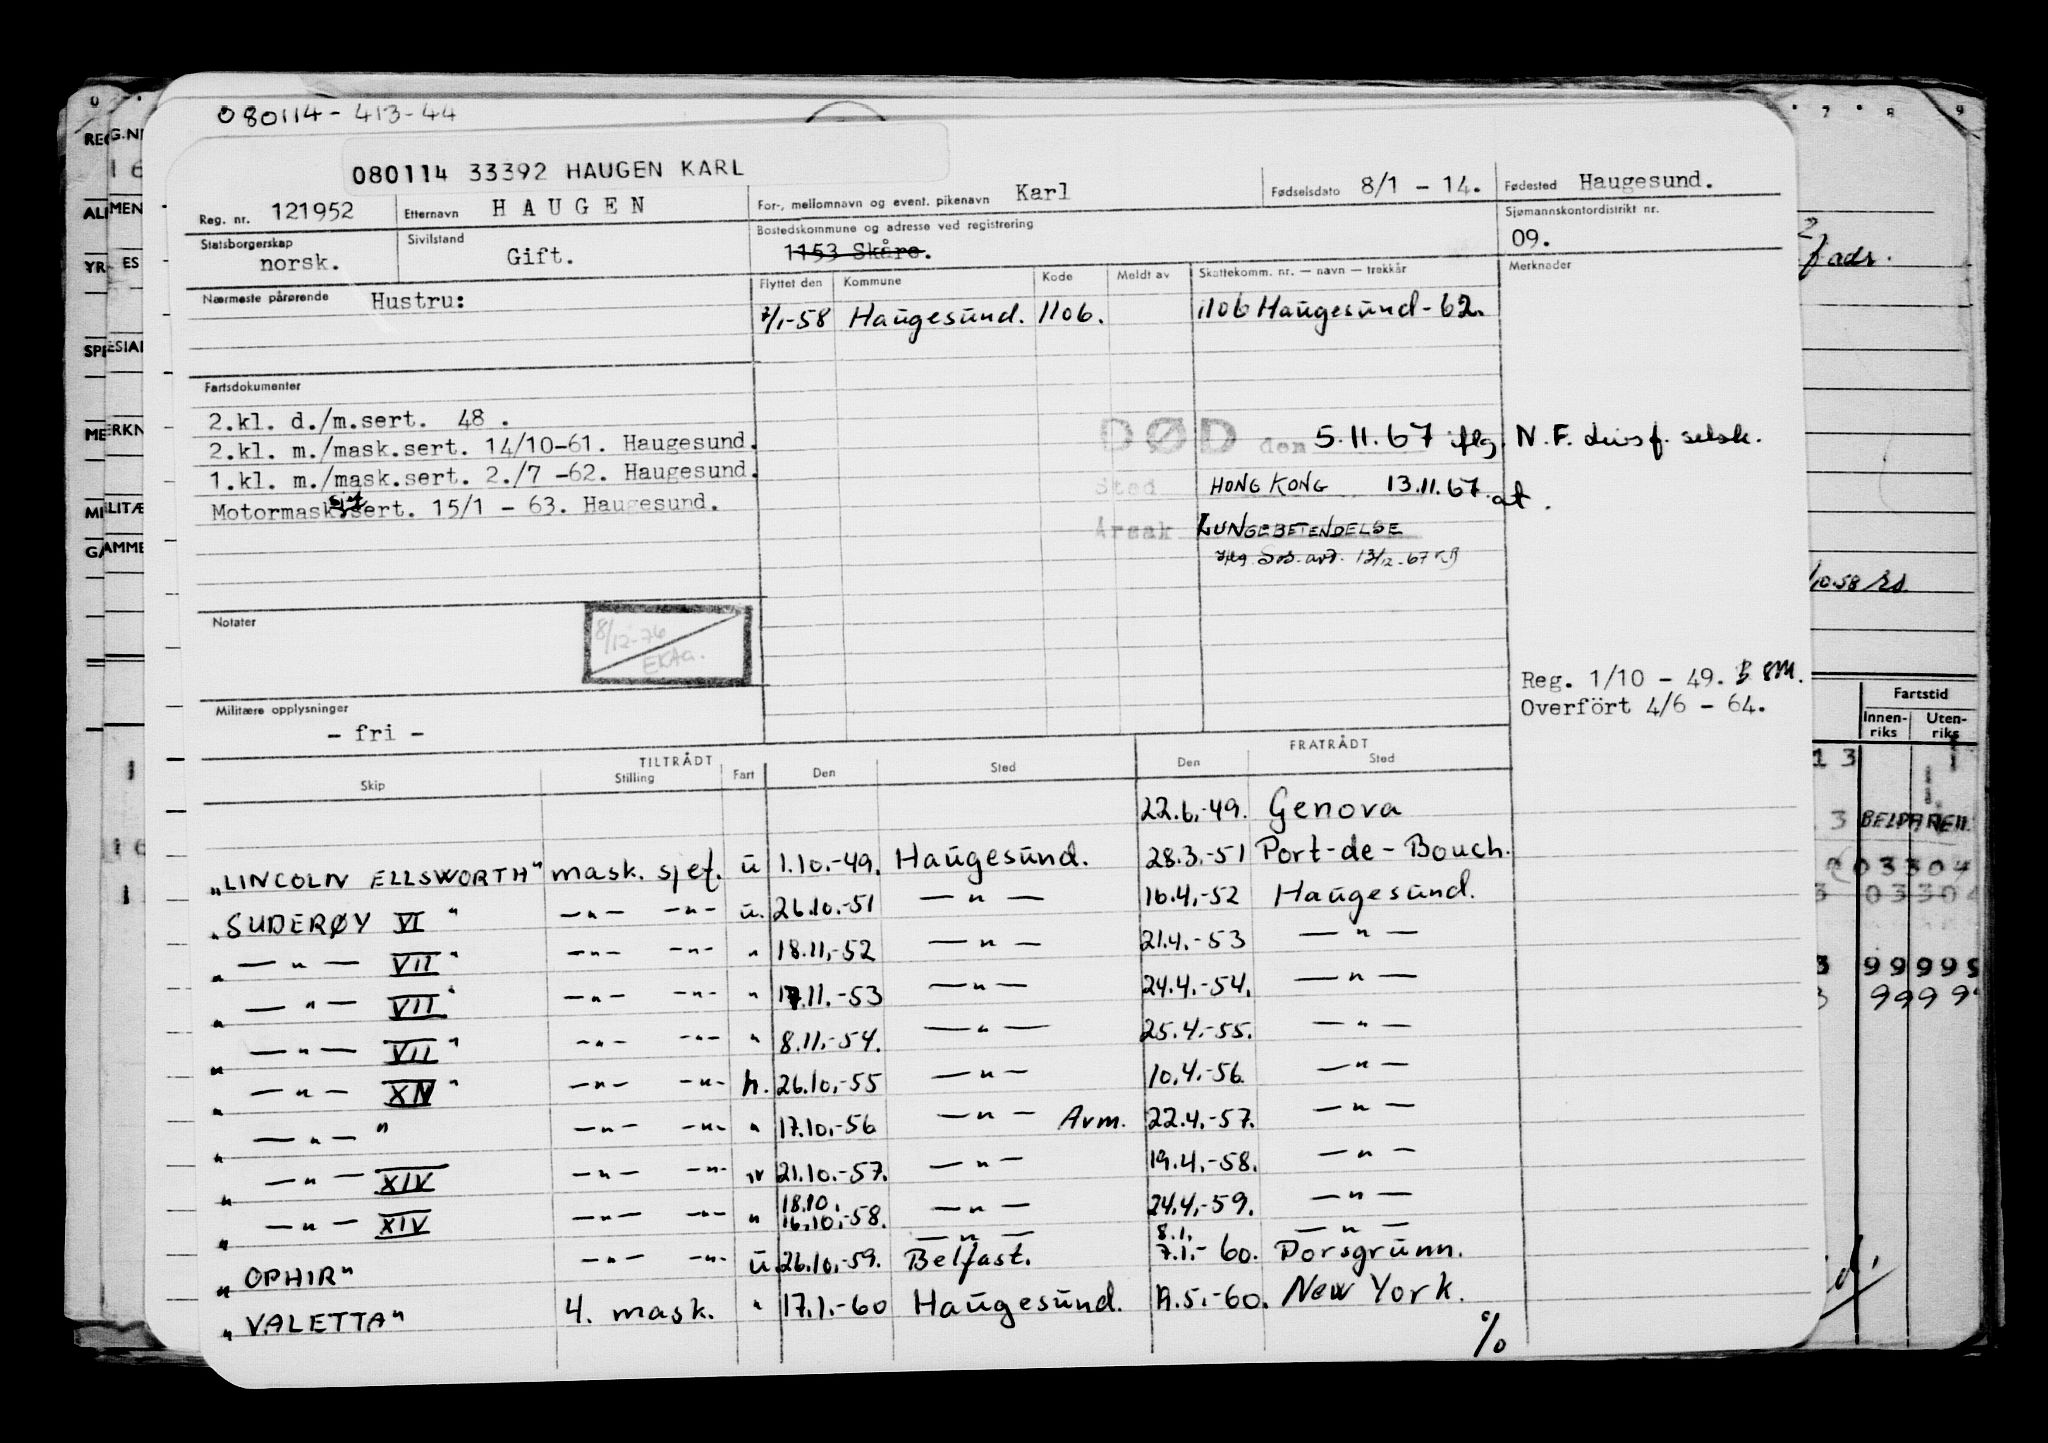 080114 - 413-44
080114 33392 HAUGEN KARL
Reg. nr. 121952 Etternavn HAUGEN For-, mellomnavn og event. pikenavn Karl Fødselsdato 8/1 - 14. Fødested Haugesund.
Statsborgerskap norsk. Sivilstand Gift. Bostedskommune og adresse ved registrering 1153 Skåre. Sjømannskontordistrikt nr. 09.
Nærmeste pårørende Hustru: Flyttet den Kommune Kode Meldt av Skattekomm. nr. — navn — trekkår Merknader
7/1-58 Haugesund. 1106. 1106 Haugesund - 62.
Fartsdokumenter
2.kl. d./m.sert. 48 .
2.kl. m./mask.sert. 14/10-61. Haugesund.
1.kl. m./mask.sert. 2./7 -62. Haugesund.
Motormask.sjef sert. 15/1 - 63. Haugesund.
DØD den 5.11.67 iflg. N.F. livsf. selsk.
Sted HONG KONG 13.11.67. at.
Årsak LUNGEBETENDELSE
iflg. Sos. avd. 13/12-67
Notater
8/12-76
EKAa.
Militære opplysninger
- fri -
Reg. 1/10 - 49. B 8M.
Overfört 4/6 - 64.
TILTRÅDT FRATRÅDT
Skip Stilling Fart Den Sted Den Sted
22.6.-49. Genova
"LINCOLN ELLSWORTH" mask. sjef. u 1.10.-49. Haugesund. 28.3.-51 Port-de-Bouch.
"SUDERØY VI" —"— —"— u. 26.10.-51 —"— 16.4.-52 Haugesund.
" —"— VII" —"— —"— " 18.11.-52 —"— 21.4.-53 —"—
" —"— VII" —"— —"— " 17.11.-53 —"— 24.4.-54. —"—
" —"— VII" —"— —"— " 8.11.-54. —"— 25.4.-55. —"—
" —"— XIV" —"— —"— h. 26.10.-55 —"— 10.4.-56 —"—
" —"— " —"— —"— " 17.10.-56 —"— Avm. 22.4.-57. —"—
" —"— XIV —"— —"— " 21.10.-57. —"— 19.4.-58. —"—
" —"— XIV —"— —"— " 18.10. 16.10.-58. —"— 24.4.-59. —"—
"OPHIR" —"— —"— u. 26.10.-59. —"— Belfast. 8.1. 7.1.-60. —"— Porsgrunn.
"VALETTA" 4. mask. " 17.1.-60 Haugesund. 19.5.-60. New York.
%
7 8 9
f adr.
/10.58 rs.
Fartstid
Innen-riks Uten-riks